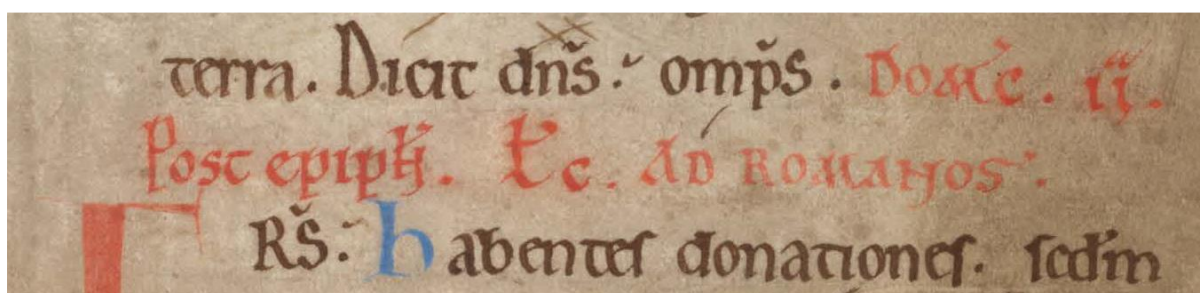 terra. Dicit dn̄s: omp̄s. Dom̄c. ii.
Post epiph̄. Łc. Ad Romanos.
FRS̄: habentes donationes. scdm̄